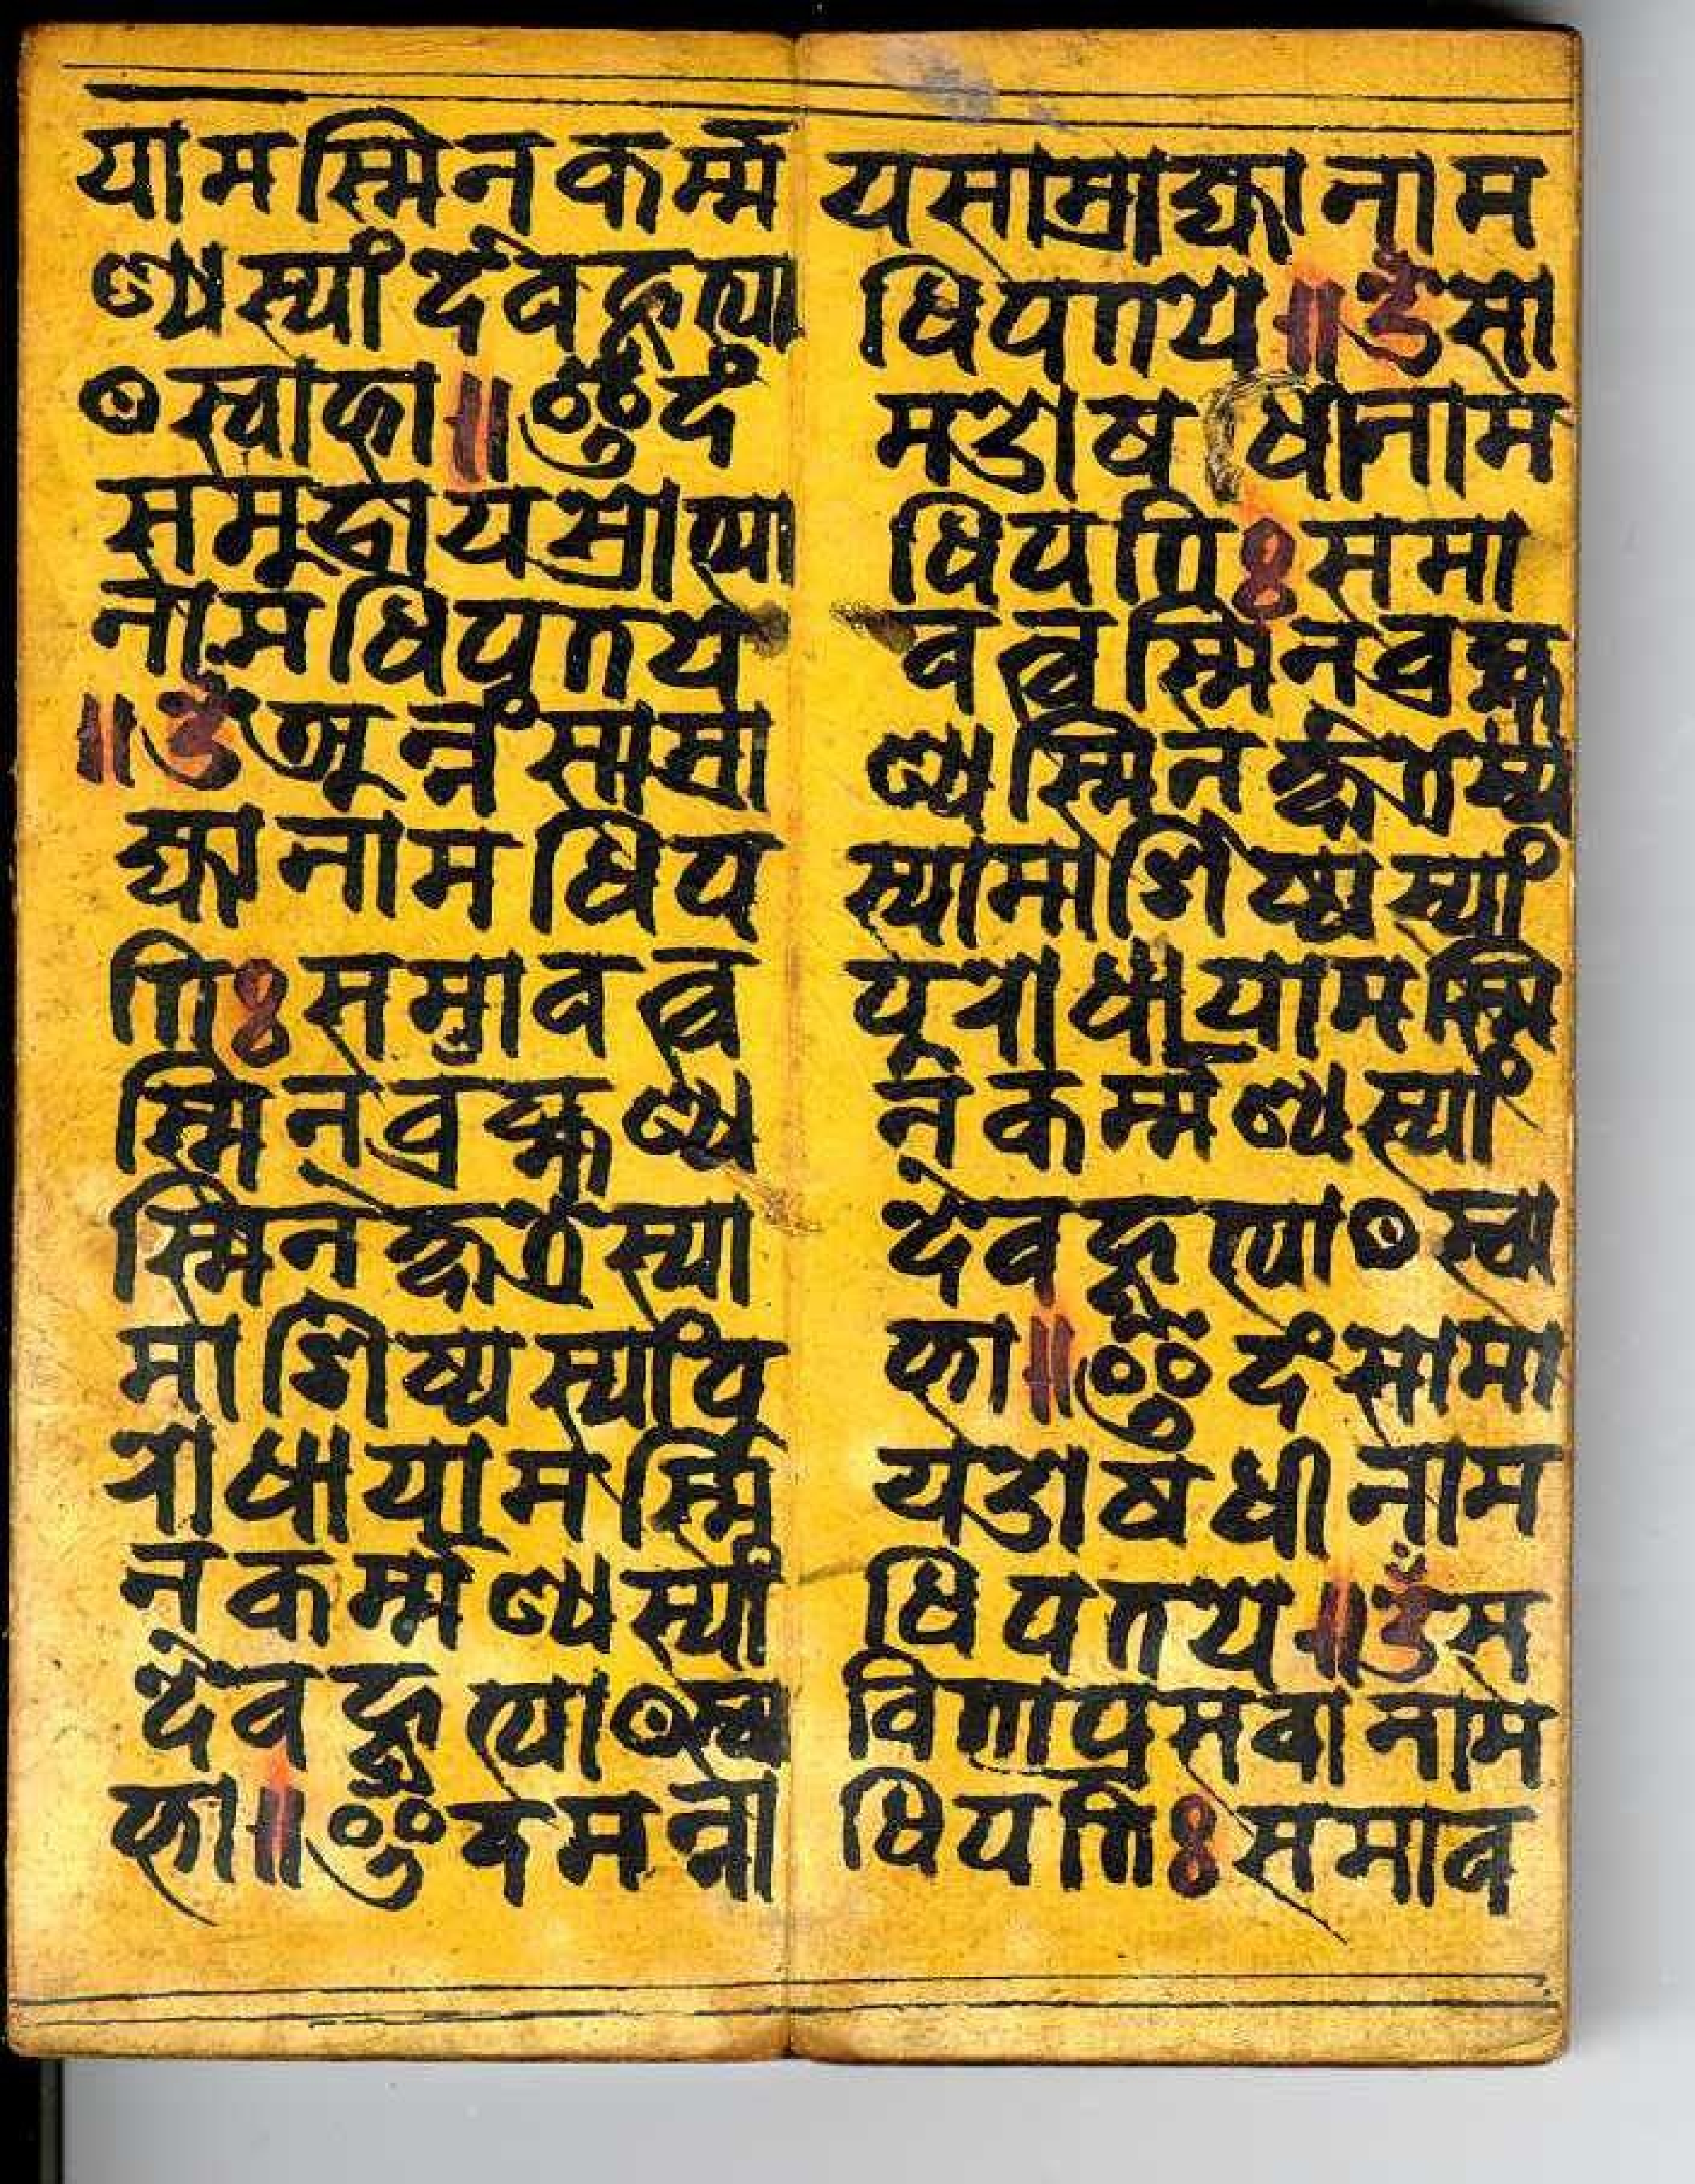 यामस्मिन कर्म्म
ण्यस्यां देवहूत्या
ꣳ स्वाहा॥ ॐ इदं
समूद्राय स्रोत्या
नामधिपतय
॥ ॐ अन्नं साम्रा
ज्यानामधिप
तिः समाव त्व
स्मिन ब्रह्मण्य
स्मिन क्षत्रस्या
माशिष्यस्यां पु
रोधायामस्मि
न कर्म्मण्यस्यां
देवहूत्याꣳ स्वा
हा॥ ॐ इदमन्ना
य साम्राज्यानाम
धिपतय॥ ॐ सा
म ओषधीनाम
धिपतिः समा
व त्वस्मिन ब्रह्म
ण्यस्मिन क्षत्र
स्यामाशिष्यस्यां
पुरोधायामस्मि
न कर्म्मण्यस्यां
देवहूत्याꣳ स्वा
हा॥ ॐ इदं सामा
य ओषधीनाम
धिपतय॥ ॐ स
विता प्रसवानाम
धिपतिः समाव